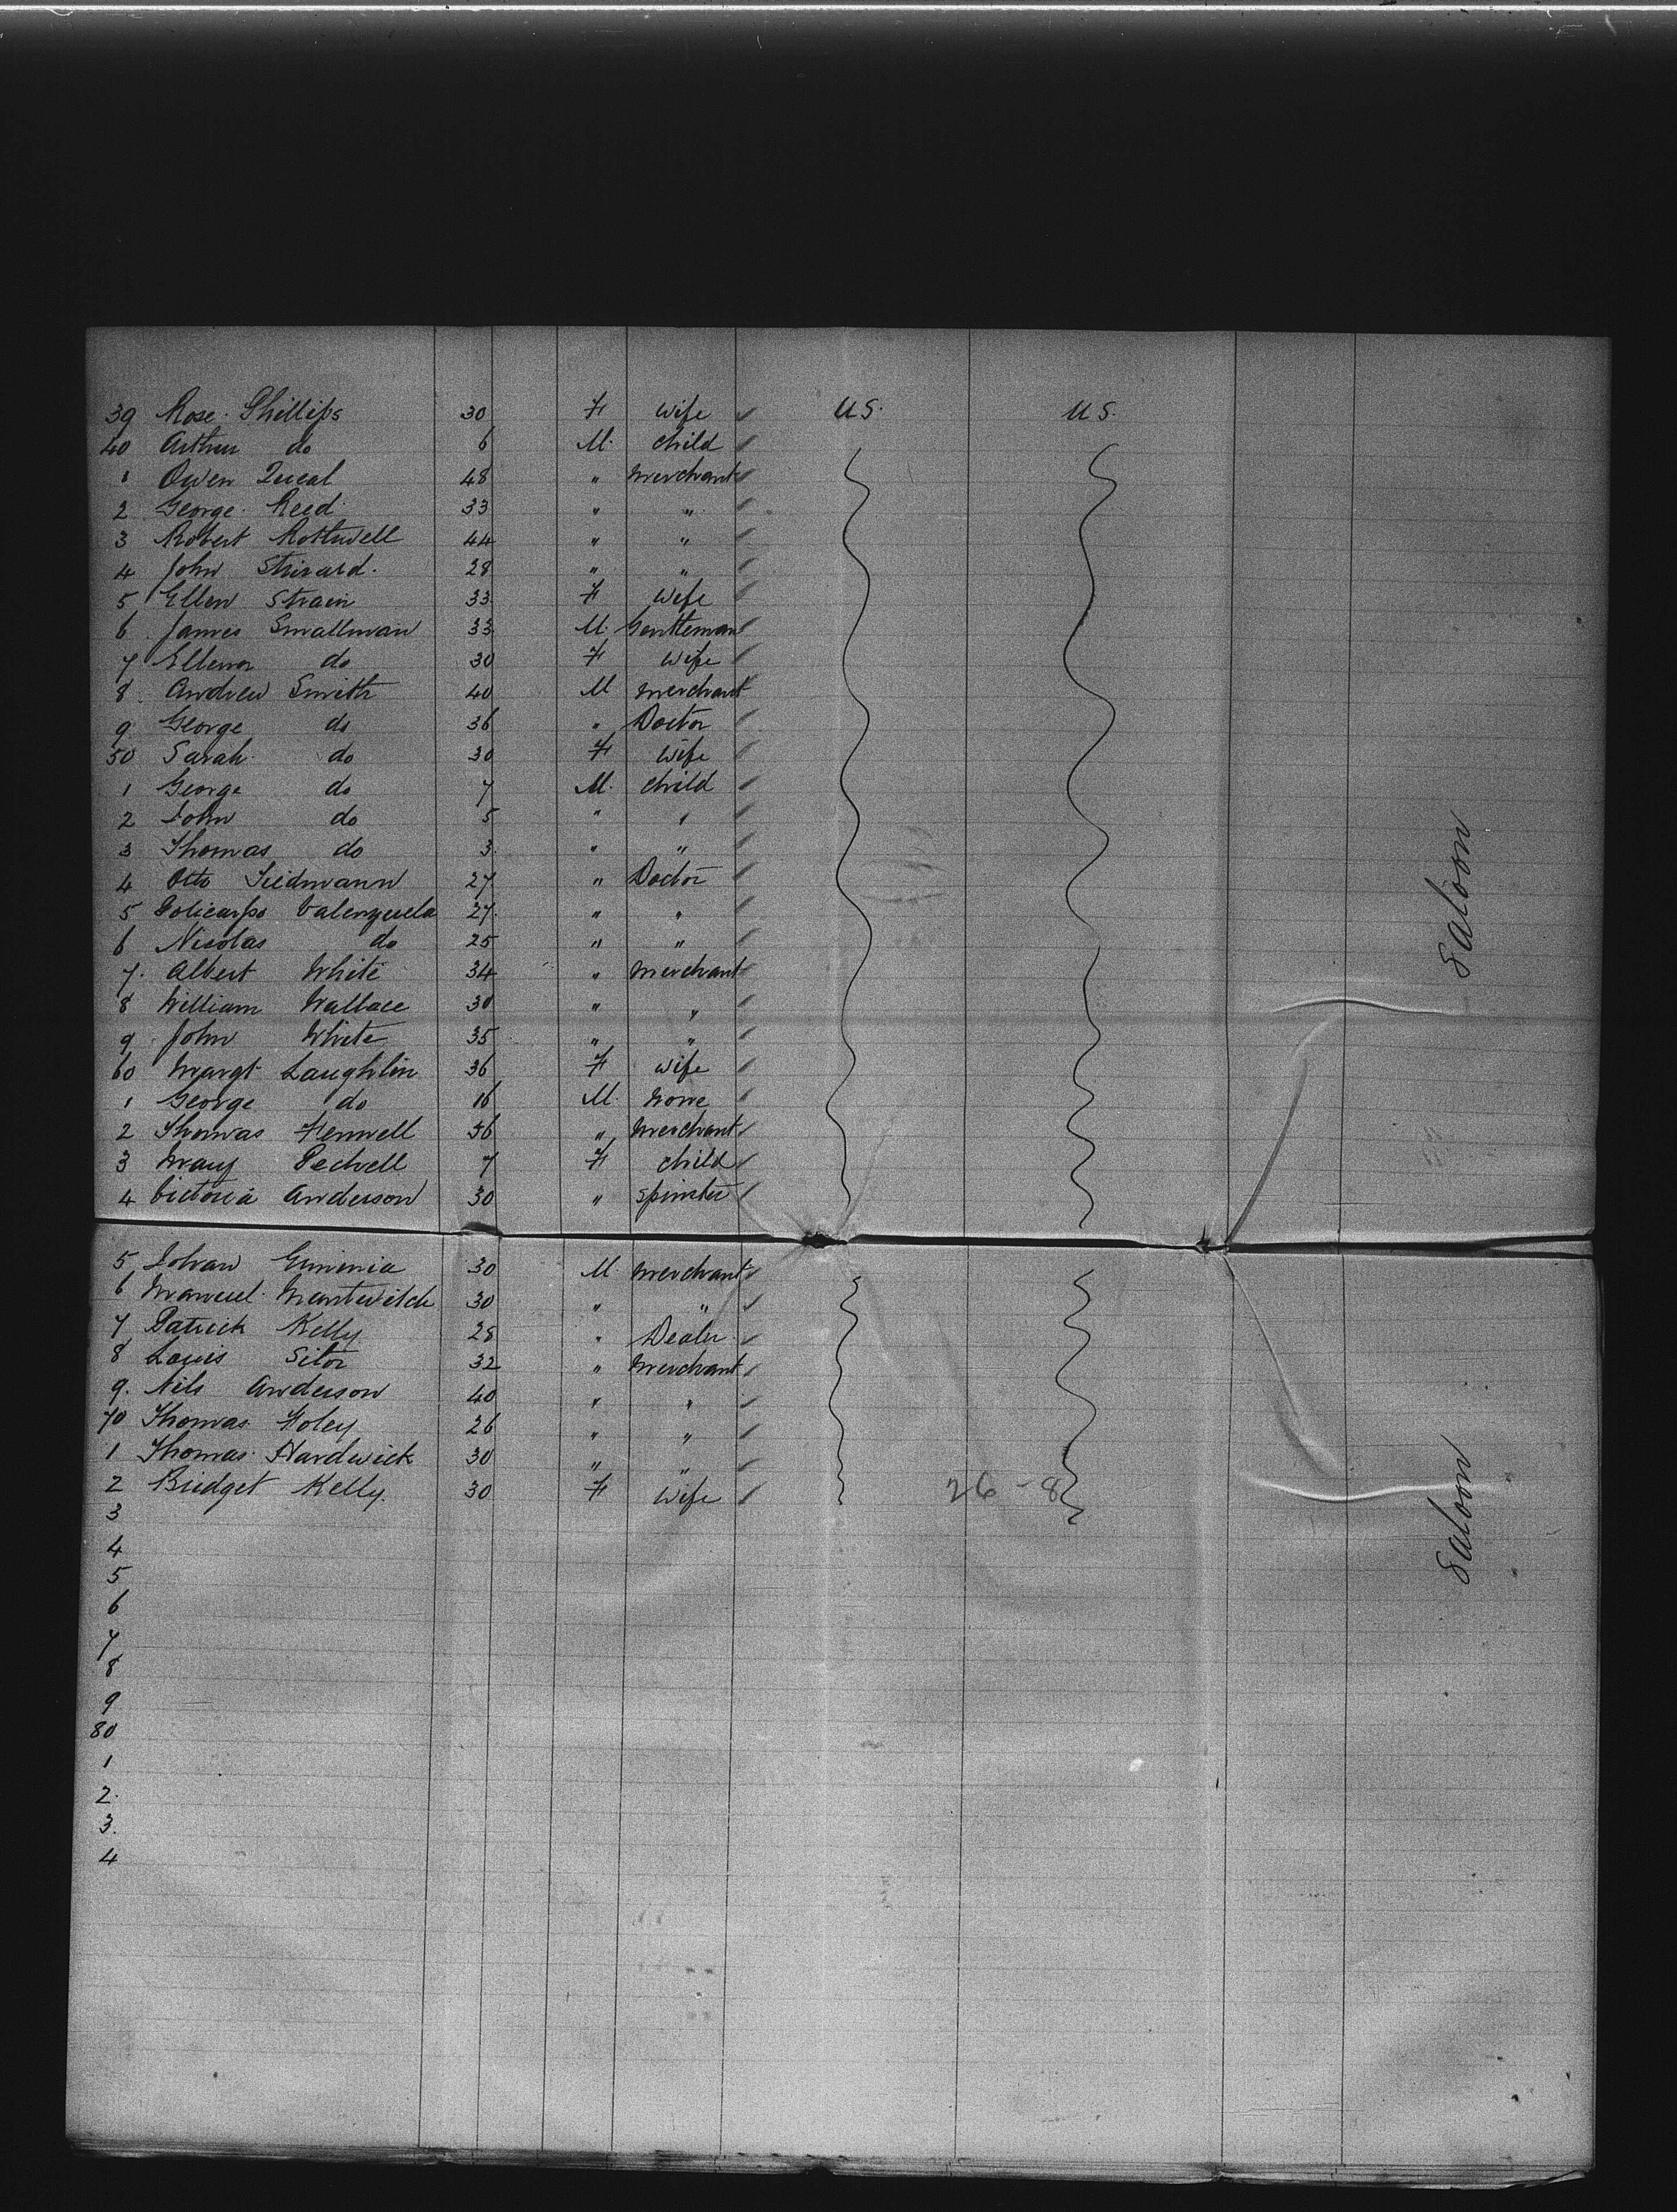 39 Rose Phillips 30 F Wife U S. U S.
40 Arthur do 6 M. Child
1 Owen Queal 48 " Merchant
2 George Reed 33 " "
3 Robert Rothwell 44 " "
4 John 28 " "
5 Ellen Strain 33 F Wife
6 James Smallman 33 M. Gentleman
7 Ellenor do 30 F Wife
8 Andrew Smith 40 M Merchant
9 George do 36 " Doctor
50 Sarah do 30 F Wife
1 George do 7 M. Child
2 John do 5 " "
3 Thomas do 3 " "
4 Otto 27 " Doctor
5 Policarpo Valenzuela 27 " "
6 Nicolas do 25 " "
7 Albert White 34 " Merchant
8 William Wallace 30 " "
9 John White 35 " "
60 Margt Laughlin 36 F Wife
1 George do 16 M. None
2 Thomas Fennell 56 " Merchant
3 Mary 7 F Child
4 Victoria Anderson 30 " Spinster
5 30 M. Merchant
6 Manuel 30 " "
7 Patrick Kelly 28 " Dealer
8 Louis Silor 32 " Merchant
9 Nils Anderson 40 " "
70 Thomas Foley 26 " "
1 Thomas Hardwick 30 " "
2 Bridget Kelly 30 F Wife 26 - 8
3
4
5
6
7
8
9
80
1
2.
3.
4
Saloon
Saloon